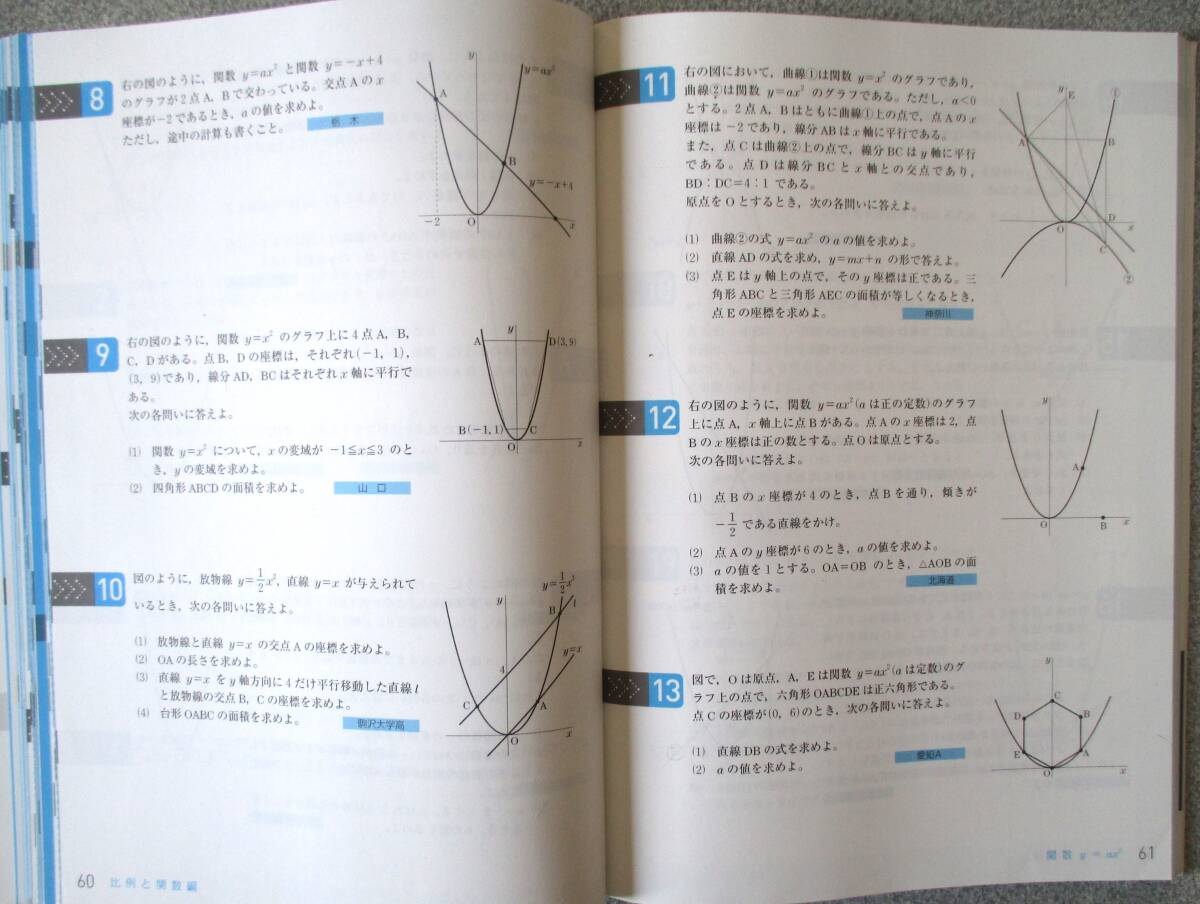 8
右の図のように，関数 y=ax² と関数 y=−x+4
のグラフが2点A，Bで交わっている。交点Aのx
座標が−2であるとき，aの値を求めよ。
ただし，途中の計算も書くこと。
栃 木
y
y=ax²
A
B
y=−x+4
−2
O
x
9
右の図のように，関数 y=x² のグラフ上に4点A，B，
C，Dがある。点B，Dの座標は，それぞれ(−1，1)，
(3，9)であり，線分AD，BCはそれぞれx軸に平行で
ある。
次の各問いに答えよ。
(1) 関数 y=x² について，xの変域が −1≦x≦3 のと
き，yの変域を求めよ。
(2) 四角形ABCDの面積を求めよ。
山 口
y
A
D(3,9)
B(−1,1)
C
O
x
10
図のように，放物線 y=1/2x²，直線 y=x が与えられて
いるとき，次の各問いに答えよ。
(1) 放物線と直線 y=x の交点Aの座標を求めよ。
(2) OAの長さを求めよ。
(3) 直線 y=x をy軸方向に4だけ平行移動した直線l
と放物線の交点B，Cの座標を求めよ。
(4) 台形OABCの面積を求めよ。
駒沢大学高
y=1/2x²
y
B
l
4
y=x
C
A
O
x
60 比例と関数編
11
右の図において，曲線①は関数 y=x² のグラフであり，
曲線②は関数 y=ax² のグラフである。ただし，a<0
とする。2点A，Bはともに曲線①上の点で，点Aのx
座標は−2であり，線分ABはx軸に平行である。
また，点Cは曲線②上の点で，線分BCはy軸に平行
である。点Dは線分BCとx軸との交点であり，
BD：DC=4：1 である。
原点をOとするとき，次の各問いに答えよ。
(1) 曲線②の式 y=ax² のaの値を求めよ。
(2) 直線ADの式を求め，y=mx+n の形で答えよ。
(3) 点Eはy軸上の点で，そのy座標は正である。三
角形ABCと三角形AECの面積が等しくなるとき，
点Eの座標を求めよ。
神奈川
y
E
①
A
B
O
D
x
C
②
12
右の図のように，関数 y=ax²(aは正の定数)のグラフ
上に点A，x軸上に点Bがある。点Aのx座標は2，点
Bのx座標は正の数とする。点Oは原点とする。
次の各問いに答えよ。
(1) 点Bのx座標が4のとき，点Bを通り，傾きが
−1/2 である直線をかけ。
(2) 点Aのy座標が6のとき，aの値を求めよ。
(3) aの値を1とする。OA=OB のとき，△AOBの面
積を求めよ。
北海道
y
A
O
B
x
13
図で，Oは原点，A，Eは関数 y=ax²(aは定数)のグ
ラフ上の点で，六角形OABCDEは正六角形である。
点Cの座標が(0，6)のとき，次の各問いに答えよ。
(1) 直線DBの式を求めよ。
(2) aの値を求めよ。
愛知A
y
C
D
B
E
A
O
x
関数 y = ax² 61